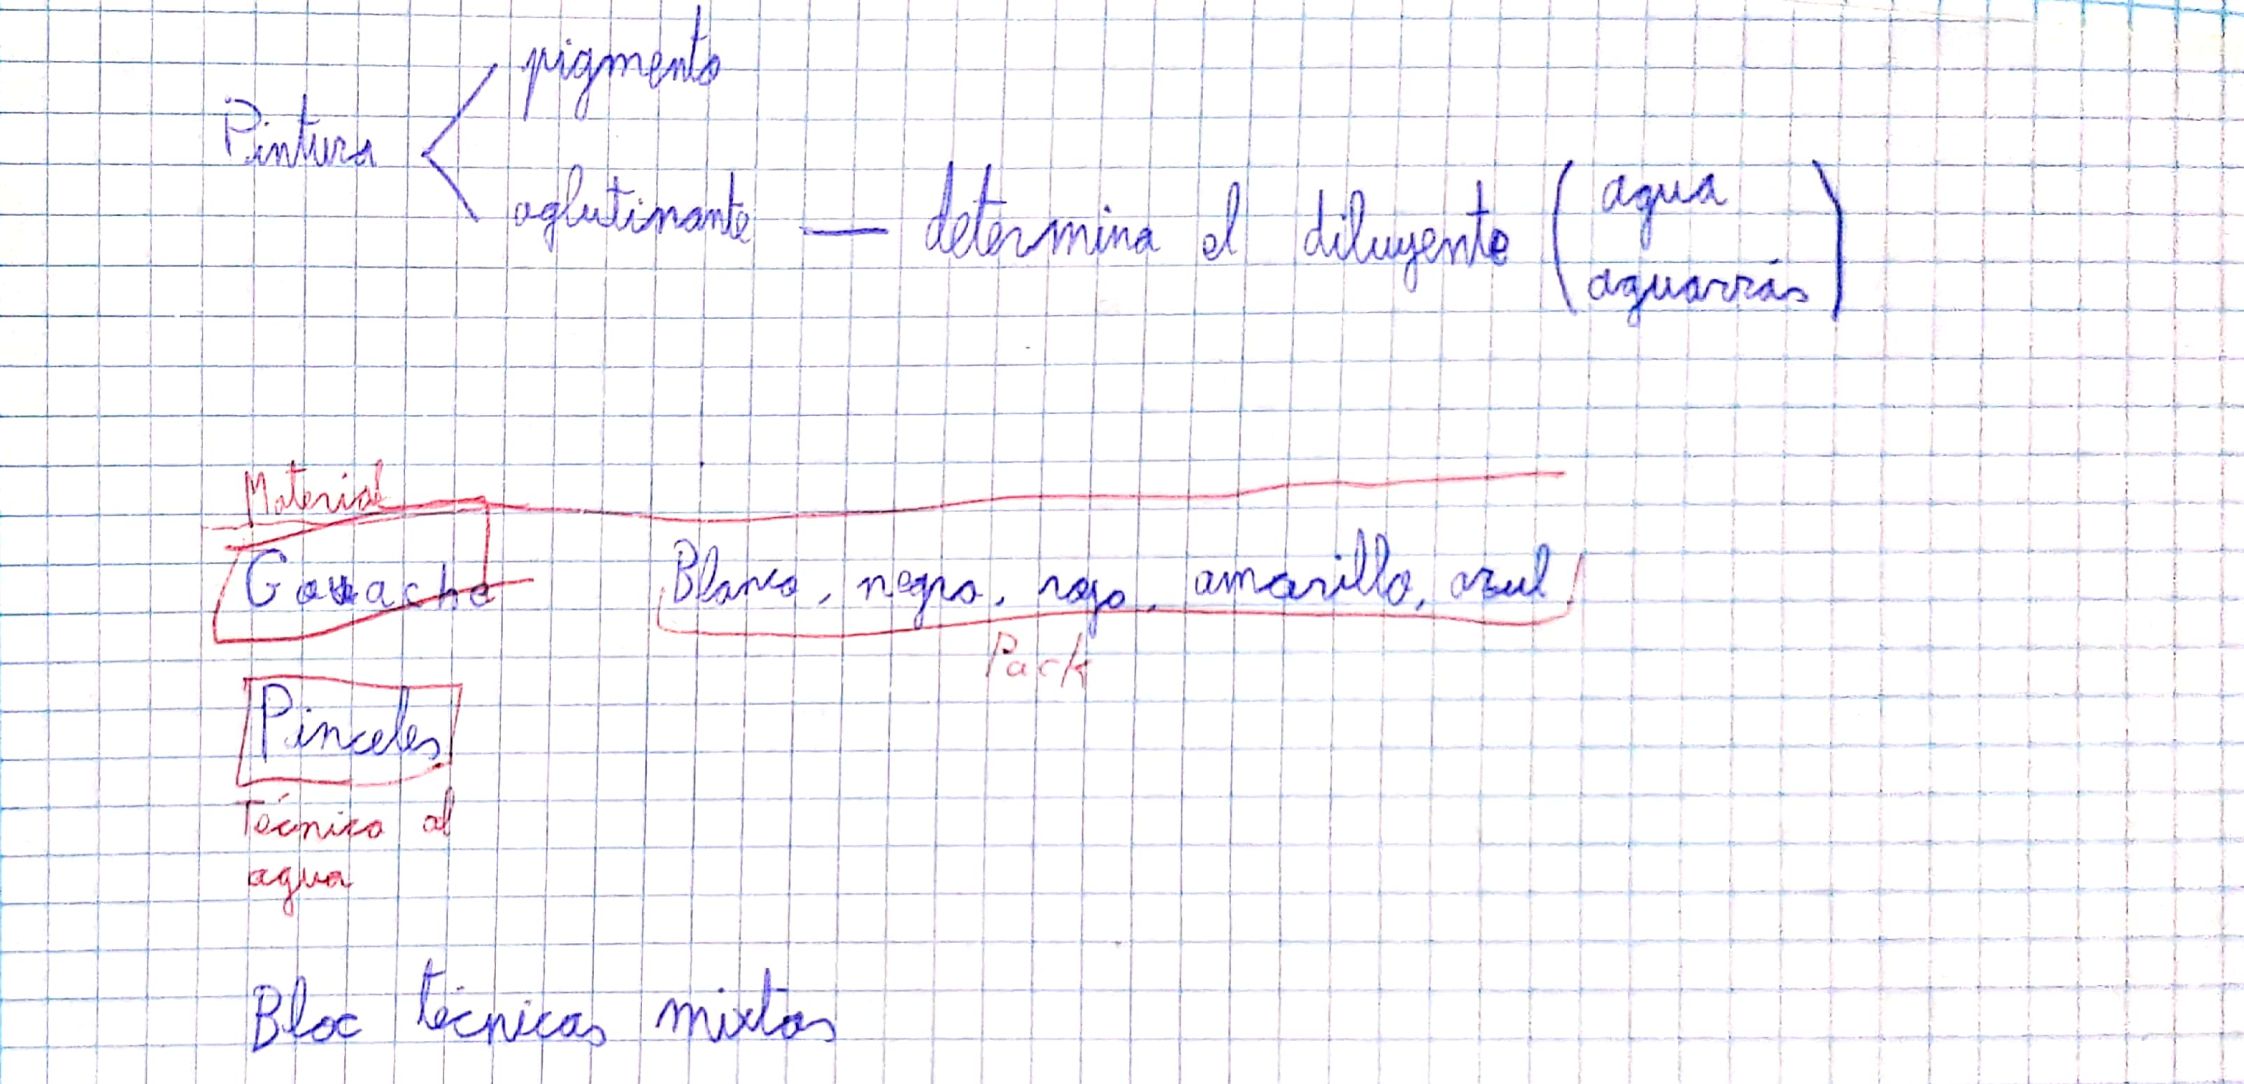 pigmento
Pintura
aglutinante — determina el diluyente (agua
aguarrás)
Material
Gouache Blanco, negro, rojo, amarillo, azul
Pack
Pinceles
Técnica al
agua
Bloc técnicas mixtas